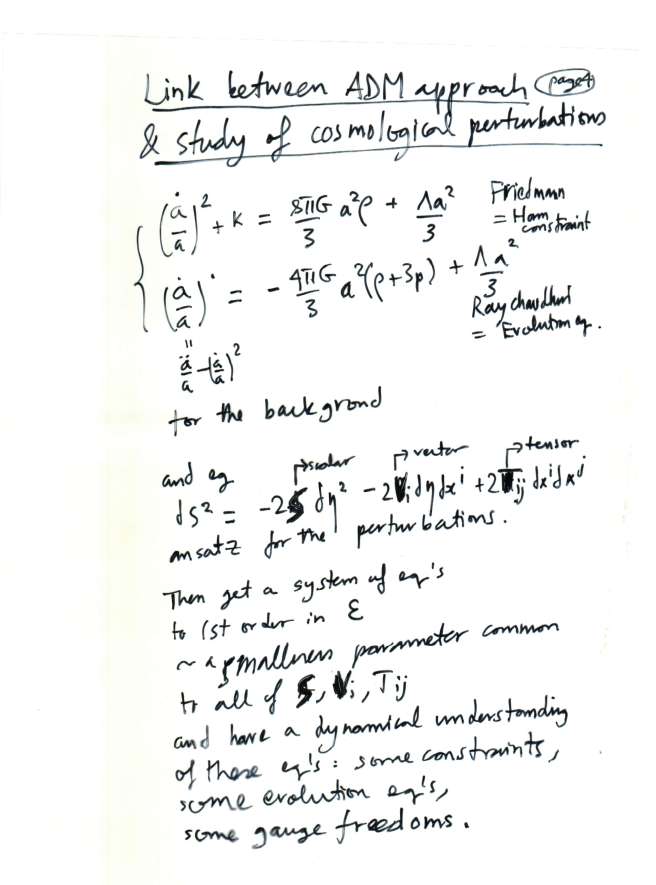 Link between ADM approach (page 4)
& study of cosmological perturbations
(ȧ/a)² + K = 8πG/3 a²ρ + Λa²/3 Friedmann = Ham constraint
(ȧ/a)˙ = - 4πG/3 a²(ρ+3p) + Λa²/3 Raychaudhuri = Evolution eq.
"
ä/a - (ȧ/a)²
for the backgrond
and eg ↱scalar ↱vector ↱tensor
ds² = -2S dη² - 2Vi dη dxⁱ + 2Tij dxⁱ dxʲ
ansatz for the perturbations.
Then get a system of eq's
to 1st order in ε
~ a smallness parameter common
to all of S, Vi, Tij
and have a dynamical understanding
of these eq's: some constraints,
some evolution eq's,
some gauge freedoms.